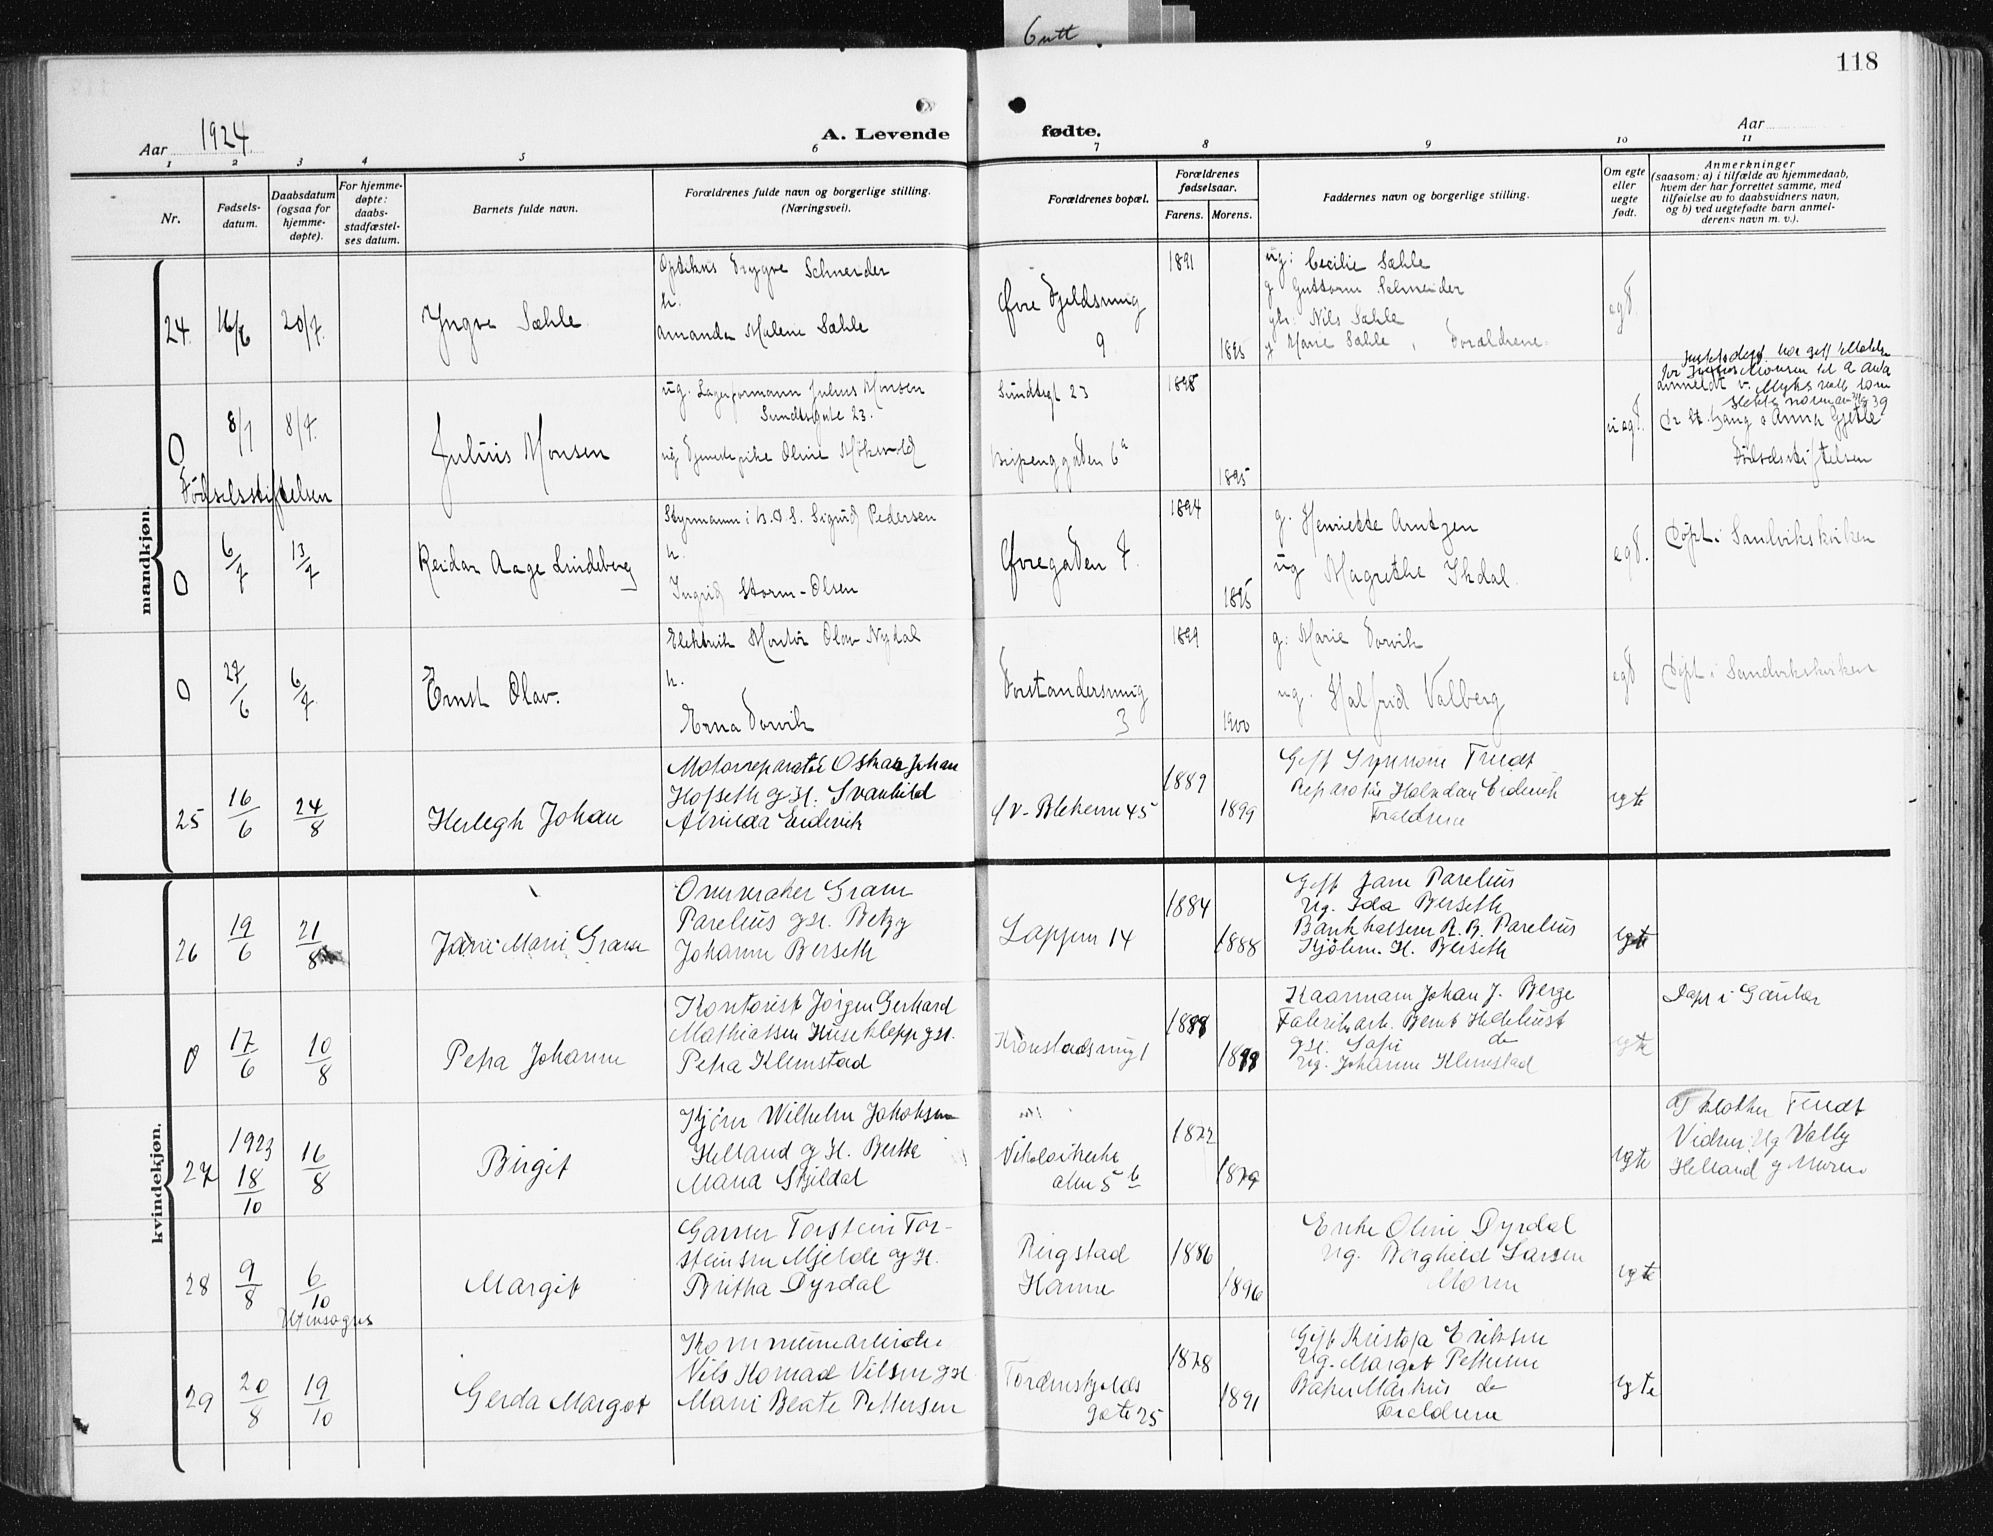 6 utt
118
Aar 1924
A. Levende fødte.
Aar
1 2 3 4 5 6 7 8 9 10 11
Nr.
Fødsels-
datum.
Daabsdatum
(ogsaa for
hjemme-
døpte).
For hjemme-
døpte:
daabs-
stadfæstel-
ses datum.
Barnets fulde navn.
Forældrenes fulde navn og borgerlige stilling.
(Næringsvei).
Forældrenes bopæl.
Forældrenes
fødselsaar.
Farens. Morens.
Faddernes navn og borgerlige stilling.
Om egte
eller
uegte
født.
Anmerkninger
(saasom: a) i tilfælde av hjemmedaab,
hvem der har forrettet samme, med
tilføielse av to daabsvidners navn,
og b) ved uegtefødte barn anmel-
derens navn m. v.).
mandkjøn.
24. 16/6 20/7.
Yngve Sæhle
Optikus Trygve Schneider
h.
Amanda Malene Sæhle
Øvre Fjeldsmug
9
1891
1895
ug: Cecilie Sæhle
g Guttorm Schneider
Nils Sæhle
g Marie Sæhle, Forældrene.
egt.
0 8/1 8/7.
Fødselsstiftelsen
Julius Monsen
ug. Lagerformann Julius Monsen
Sundtsgate 23.
ug Tjenestepike Oline
Sundtsgt 23
6a
1895
uegt.
Fødselsstiftelsen
0 6/7 13/7
Reidar Aage Lindeberg
Styrmann i B.D.S. Sigurd Pedersen
h.
Ingrid Storm-Olsen
Øvregaden 7.
1894
1895
g. Henriette Arntzen
ug Magrethe Ihdal.
egt.
Døpt i Sandvikskirken
0 27/6 6/7
Ernst Olav.
Elektrisk Montør Olav Nydal
h.
Erna Torvik
Forstandersmug
3
1899
1900
g: Marie Torvik
ug. Halfrid Valberg
egt
Døpt i Sandvikskirken
25 16/6 24/8
Herlegh Johan
Motorreparatør Oskar Johan
Hofseth g H. Svanhild
Alvilda Eidsvik
Øv-Blekevei 45
1889
1899
Gift Synnøve Fredt
Reparatør Halvdan Eidsvik
Forældrene
egte
kvindekjøn.
26 19/6 21/8
Jane Marie Gram
Overvraker Gram
Parelius g H. Betzy
Johanne Berseth
Lappen 14
1884
1888
Gift Jane Parelius
Ug. Ida Berseth
Bankkasserer R. B. Parelius
Kjøbm. H. Berseth
egte
0 17/6 10/8
Petra Johanne
Kontorist Jørgen Gerhard
Mathiassen Huseklepp g H.
Petra Klemetsad
Kronstadsmug 1
1888
1899
Kaarmann Johan J. Berge
Fabrikarb. Bernt
g H. do
Ug. Johanne
egte
Døpt i Gaulær
27 1923 18/10 16/8
Birgit
Kjører Wilhelm Jakobsen
Helland g H. Berthe
Maria Skjeldal
Nikolaikirke
alm 5 b
1872
1879
egte
af klokker Fredt
Vidner: Ug Valby
Helland g Moren
28 9/8 6/10
Utensogns
Margit
Garver Torstein Tor-
steinsen Mjelde og H.
Britha Dyrdal
Ringstad
Hamre
1886
1896
Enke Oline Dyrdal
Ug. Borghild Larsen
Moren
egte
29 20/8 19/10
Gerda Margot
Kommunearbeider
Nils Konrad Nilsen g H.
Marie Beate Pettersen
Tordenskjolds
gate 25
1878
1891
Gift Kristofa Eriksen
Ug. Margot Pettersen
Baker Markus do
Forældrene
egte